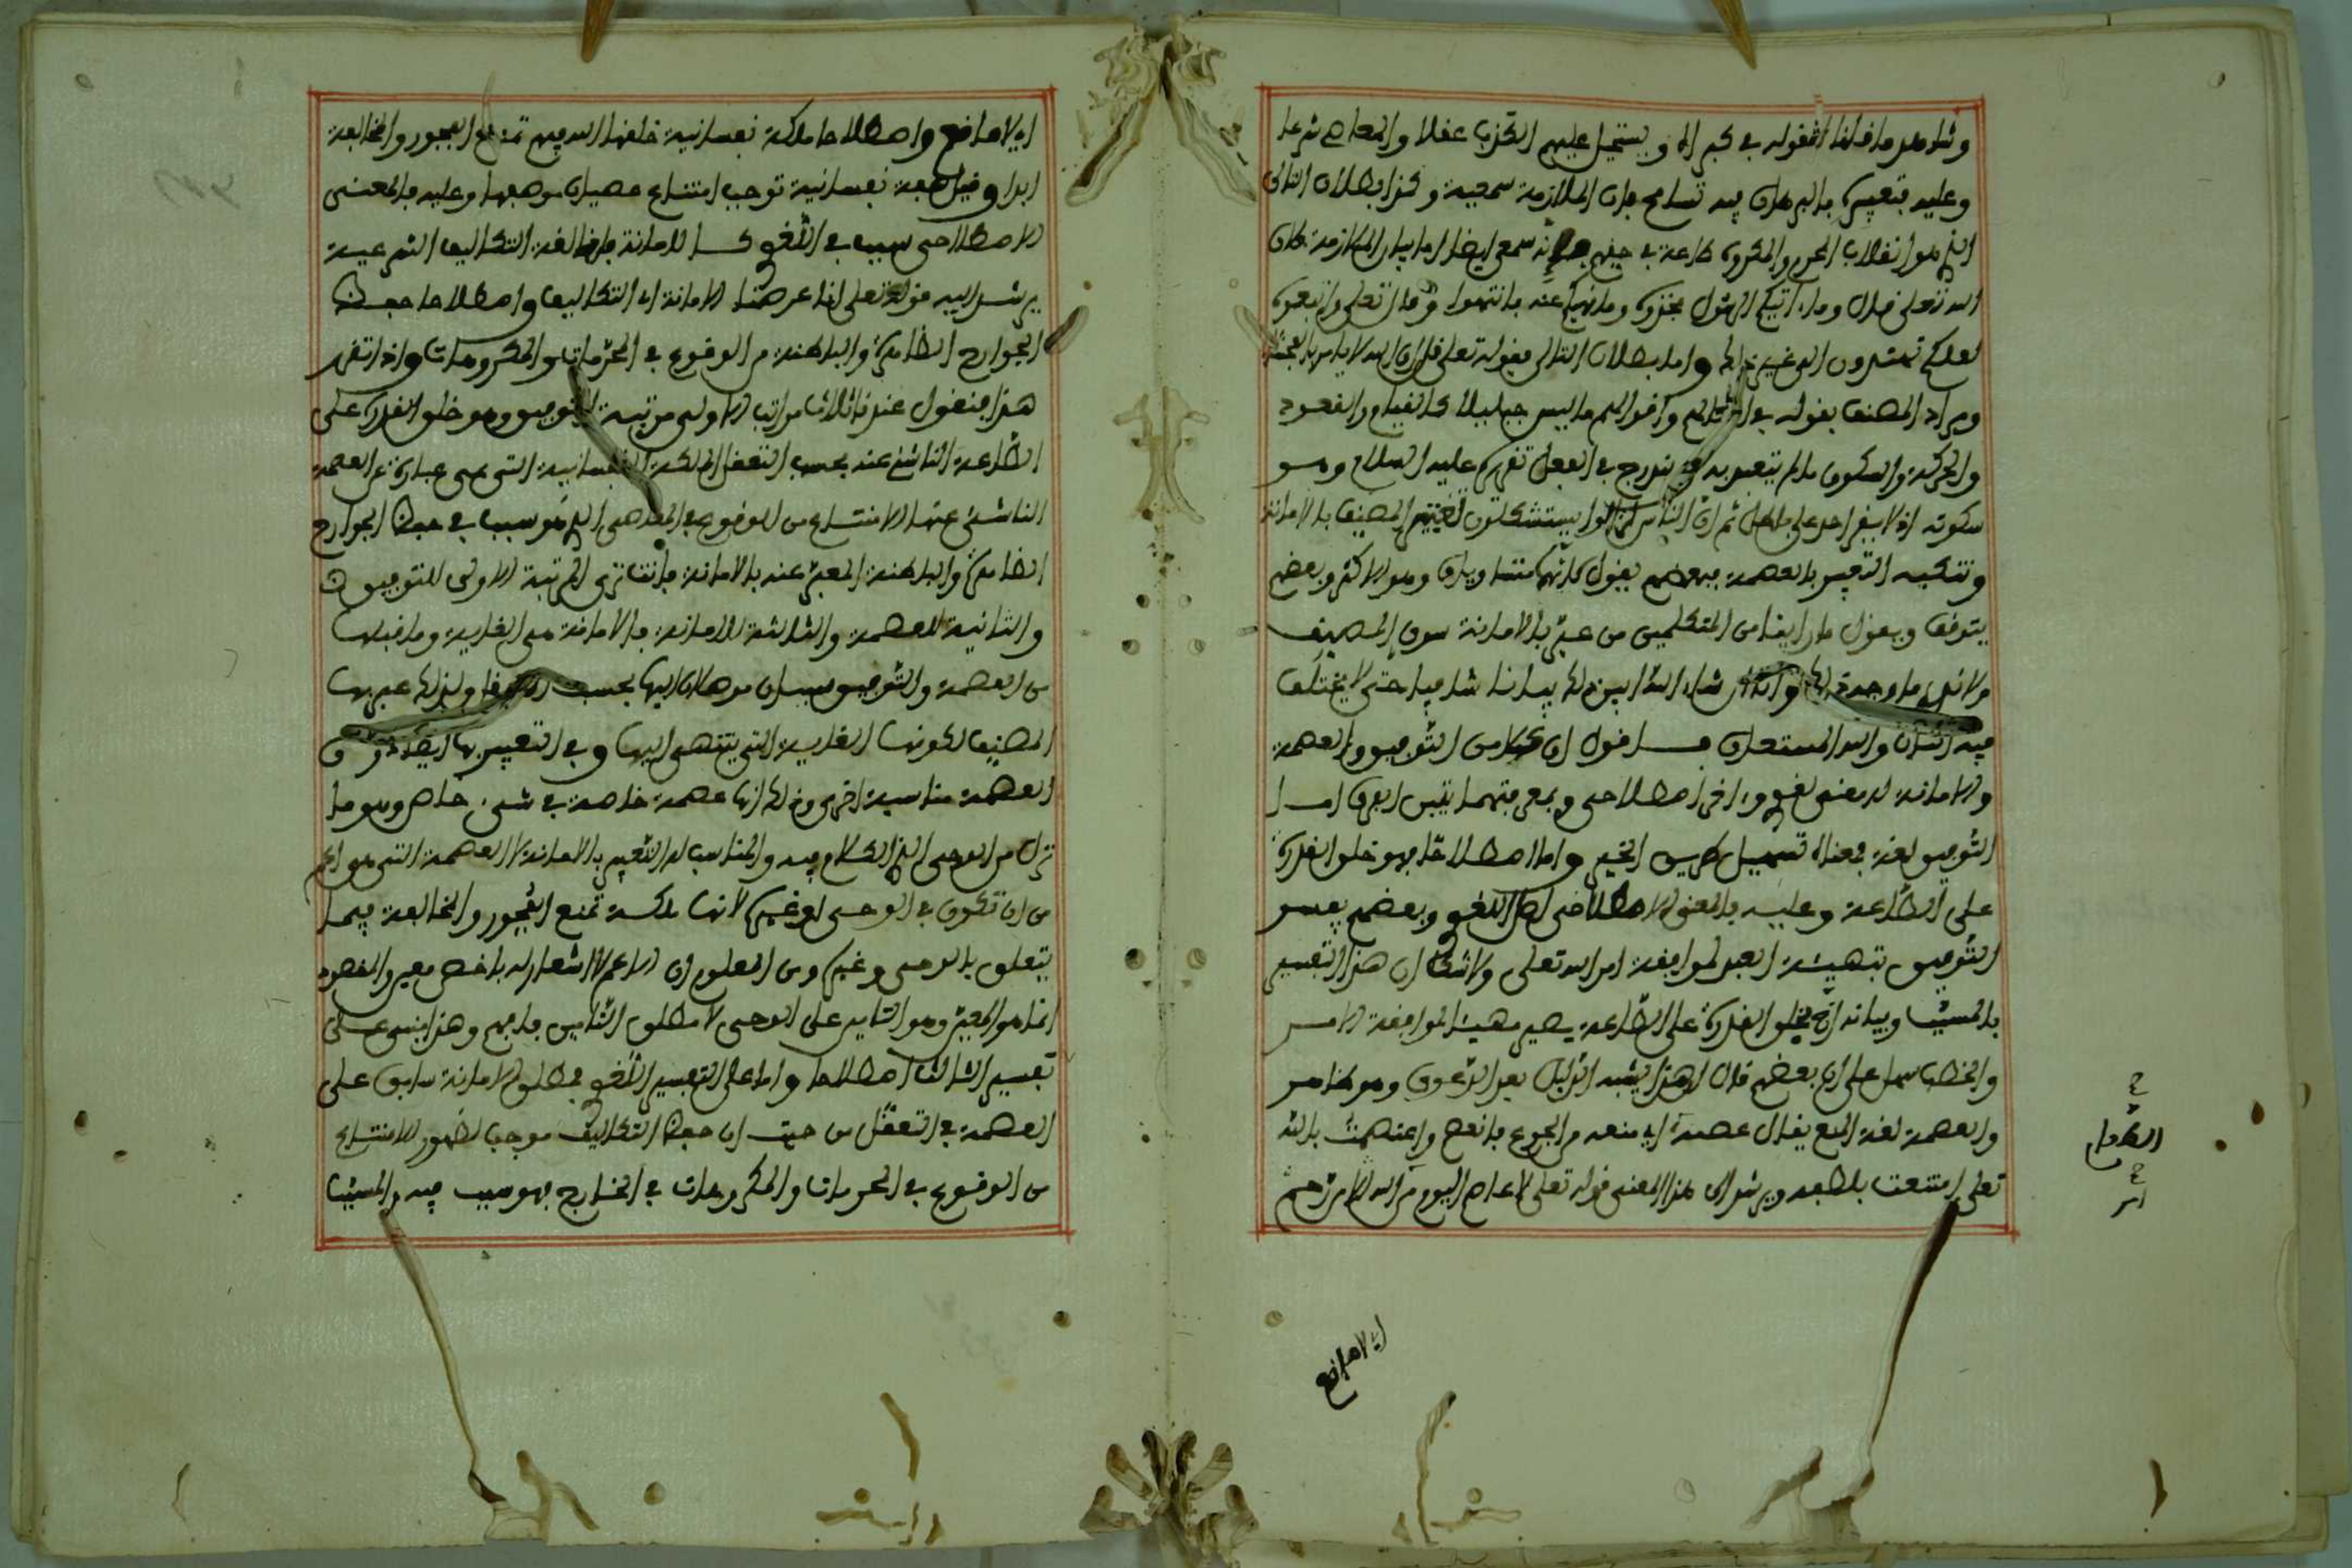 وشاهد ما قلنا قوله في كبراه ويستحيل عليهم الكذب عقلا والمعاصي شرعا
وعليه فتعبيره بالبرهان فيه تسامح فان الملازمة سمعية وكذا بطلان التالي
الذي هو انقلاب المحرم والمكروه طاعة في حقهم فانه سمعي ايضا اما بيان الملازمة فلان
الله تعلى قال وما ءاتيكم الرسول فخذوه وما نهيكم عنه فانتهوا وقال تعلى واتبعوه
لعلكم تهتدون الى غير ذلك واما بطلان التالي فقوله تعلى قل ان الله لا يامر بالفحشاء
ومراد المصنف بقوله في افعالهم واقوالهم ما ليس جبليا كالقيام والقعود
والحركة والسكون ما لم يتعبد به ويندرج في الفعل تقريره عليه السلام وهو
سكوته اذ لا يقر احد على باطل ثم ان الناس لم يزالوا يستشكلون تعبير المصنف بالامانة
وتنكبه التعبير بالعصمة فبعضهم يقول كانهما متساويان وهو الاكثر وبعضهم
يتوقف ويقول ما راينا من المتكلمين من عبر بالامانة سوى المصنف
ولا ندري ما وجه ذلك وانا ان شاء الله ابين ذلك بيانا شافيا حتى لا يختلف
فيه اثنان والله المستعان فاقول ان كلا من التوفيق والعصمة
والامانة له معنى لغوي واخر اصطلاحي وبمعرفتهما يتبين الفرق اما
التوفيق لغة فمعناه تسهيل طريق الخير واما اصطلاحا فهو خلق القدرة
على الطاعة وعليه فالمعنى الاصطلاحي اصل اللغوي وبعضهم يفسر
التوفيق بتهيئة العبد لموافقة امر الله تعلى ولا شك ان هذا تفسير
بالمسبب وبيانه انه بخلق القدرة على الطاعة يصير مهيئا لموافقة الامر
والخطب سهل على ان بعضهم قال ان هذا يشبه الذيل بعد الدعوى وهو ظاهر
والعصمة لغة المنع يقال عصمه اي منعه من الجوع مانع واعتصمت بالله
تعلى امتنعت بلطفه ويرشد الى هذا المعنى قوله تعلى لا عاصم اليوم من امر الله الا من رحم
اي لا مانع
اي لا مانع واصطلاحا ملكة نفسانية خلقها الله فيهم تمنع الفجور والمخالفة
ابدا وقيل صفة نفسانية توجب امتناع عصيان موصوفها وعليه فالمعنى
الاصطلاحي سبب في اللغوي كما للامانة فانها لغة التكاليف الشرعية
يرشد اليه قوله تعلى انا عرضنا الامانة اي التكاليف واصطلاحا حفظ
الجوارح الظاهرة والباطنة من الوقوع في المحرمات والمكروهات واذا تقرر
هذا فنقول عندنا ثلاث مراتب الاولى مرتبة التوفيق وهو خلق القدرة على
الطاعة الناشئ عنه بحسب التعقل الملكة النفسانية التي هي عبارة عن العصمة
الناشئ عنها الامتناع من الوقوع في المعاصي الذي هو سبب في حفظ الجوارح
الظاهرة والباطنة المعبر عنه بالامانة فانت ترى المرتبة الاولى للتوفيق
والثانية للعصمة والثالثة للامانة فالامانة هي الغاية وما قبلها
من العصمة والتوفيق سببان موصلان اليها بحسب ولذلك عبر بها
المصنف لكونها الغاية التي ينتهى اليها وفي التعبير بها ايضا دون
العصمة مناسبة اخرى وذلك انها عصمة خاصة في شيء خاص وهو ما
نزل من الوحي الذي الكلام فيه والمناسب له التعبير بالامانة لا العصمة التي هو اعم
من ان تكون في الوحي او غيره لانها ملكة تمنع الفجور والمخالفة فيما
يتعلق بالوحي وغيره ومن المعلوم ان الاعم لا اشعار له باخص معين والمقصود
انما هو المعبر وهو التامين على الوحي لا مطلق التامين فافهم وهذا مبني على
تفسير الثالث اصطلاحا واما على التفسير اللغوي فمطلق الامانة سابق على
العصمة في التعقل من حيث ان حفظ التكاليف موجب لظهور الامتناع
من الوقوع في المحرمات والمكروهات في الخارج فهو سبب فيه والمسبب